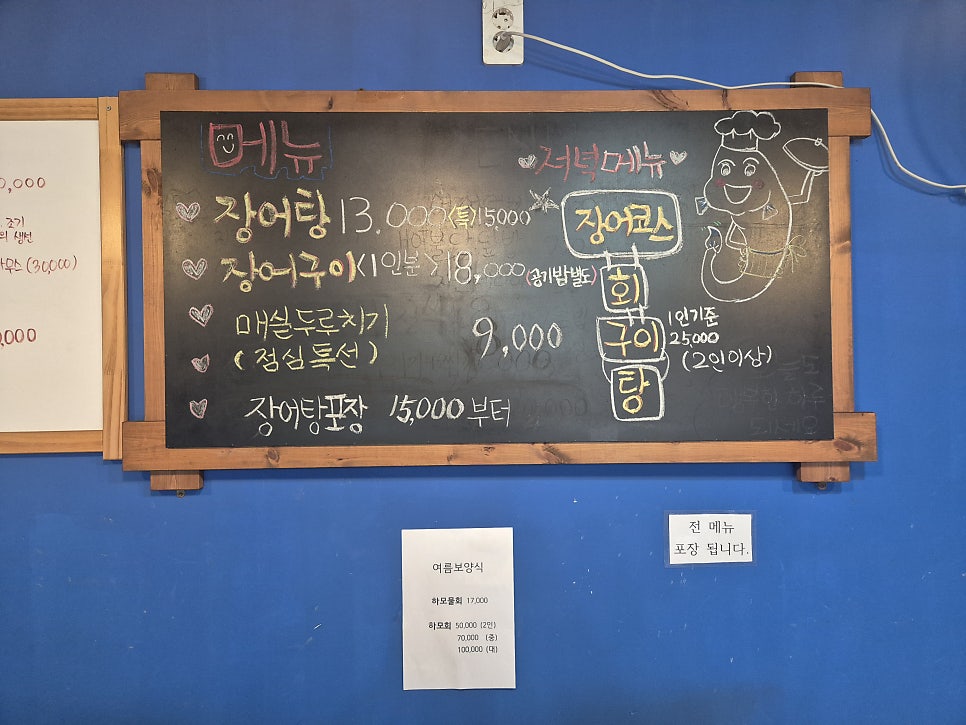 0,000
조기
의 생선
하우스 (30000)
,000
메뉴
장어탕 13.000 <특>15000
장어구이 <1인분> 18,000 (공기밥별도)
매실두루치기 9,000
(점심특선)
장어탕포장 15,000 부터
저녁메뉴
장어코스
회
구이
탕
1인기준
25000
(2인이상)
여름보양식
하모물회 17,000
하모회 50,000 (2인)
70,000 (중)
100,000 (대)
전 메뉴
포장 됩니다.